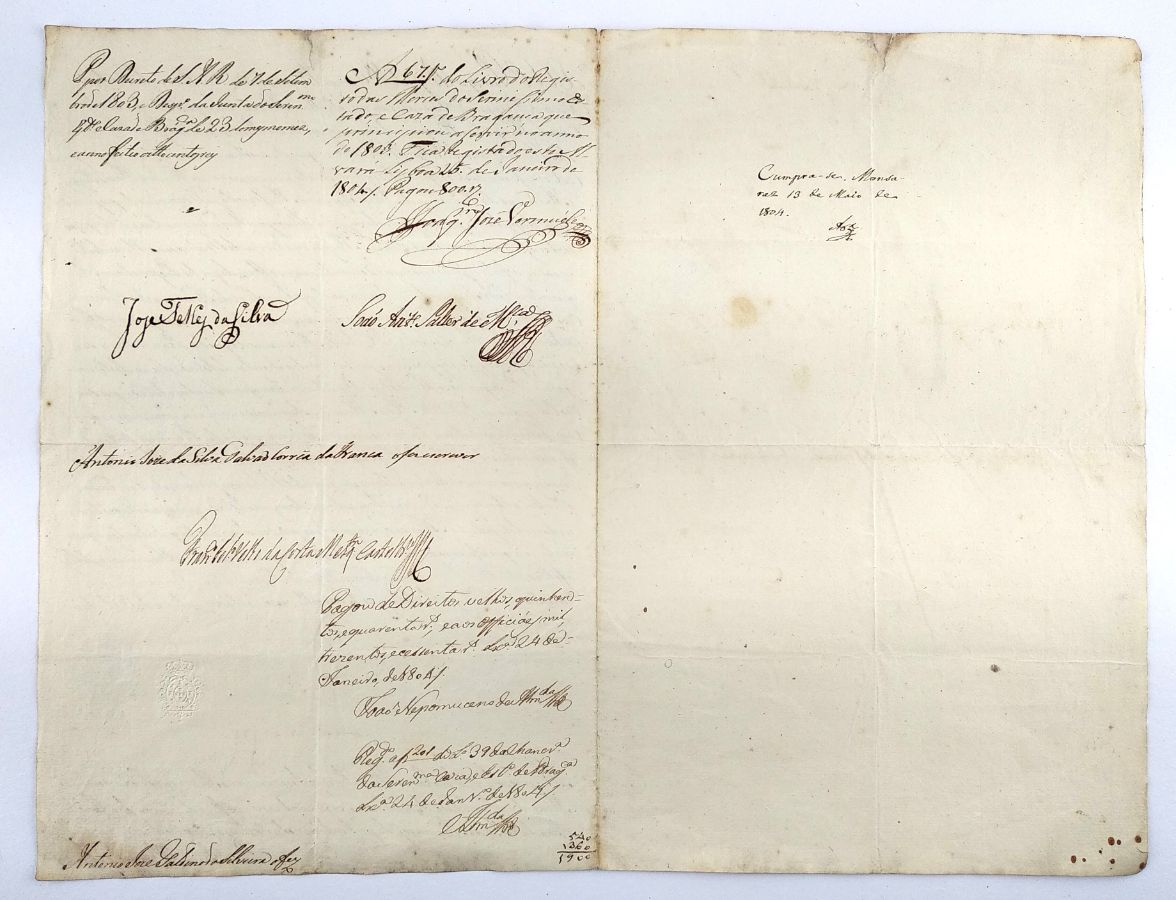 Por Decreto de S.A.R. de 7 de Setem
bro de 1803, e Desp.º da Junta do Seren.mo
Est.do e Caza de Brag.ª de 23 do mesmo mez,
e anno
Nº 67 do Livro do Regis
to das Merces do Serenissimo Es
tado, e Caza de Bragança que
principiou a servir no anno
de 1803. Fica registado este Al
vará. Lisboa 25 de Janeiro de
1804. Pagou 800 r.s
Joaq.m Joze
Joze Telles da Silva
João Ant.º Salter de M.ça
Antonio Joze da Silva Salvad. Corrêa da Franca o fez escrever
da Costa
Pagou de Direitos velhos quinhen-
tos, e quarenta r.s, e aos Officiaes mil,
trezentos, e cessenta r.s Lx.ª 24 de
Janeiro, de 1804
João Nepomuceno de Alm.da
Reg.do a f. 201 do L.º 39 da Chancr.ª
da Seren.ma Caza, e Est.º de Brag.ª
Lx.ª 24 de Jan.ro de 1804
Alm.da
540
1360
1900
Antonio Joze da Silveira o fez
Cumpra-se. Monsa-
raz 13 de Maio de
1804.